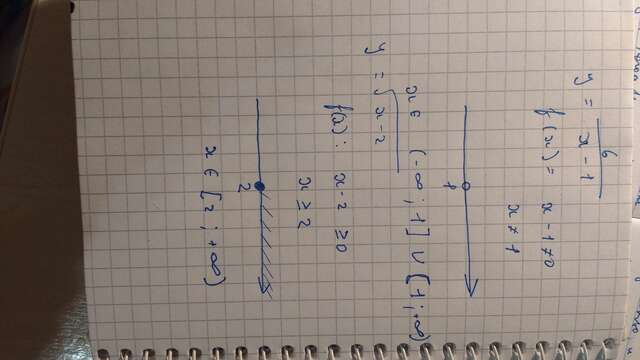 y = 6/(x - 1)
f(x) = x - 1 ≠ 0
x ≠ 1
1
x ∈ (-∞ ; 1] ∪ [1 ; +∞)
y = √(x - 2)
f(x) : x - 2 ≥ 0
x ≥ 2
2
x ∈ [2 ; +∞)